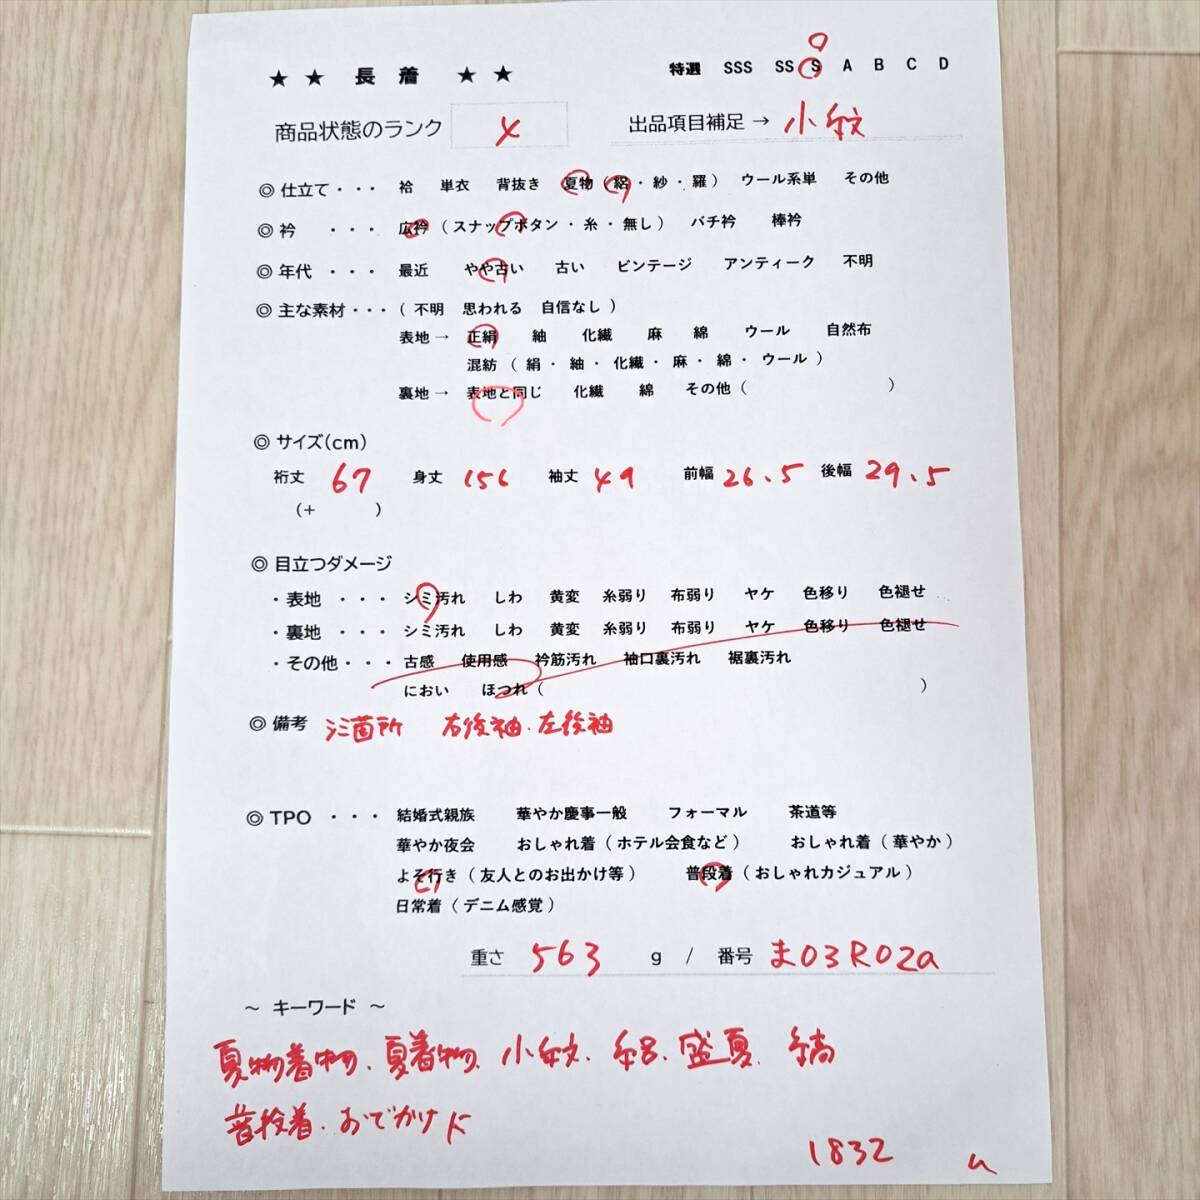 ★ ★ 長 着 ★ ★ 特選 SSS SS S A B C D
商品状態のランク 4 出品項目補足 → 小紋
◎ 仕立て・・・ 袷 単衣 背抜き 夏物（絽・紗・羅） ウール系単 その他
◎ 衿 ・・・ 広衿（スナップボタン・糸・無し） バチ衿 棒衿
◎ 年代 ・・・ 最近 やや古い 古い ビンテージ アンティーク 不明
◎ 主な素材・・・（不明 思われる 自信なし）
表地 → 正絹 紬 化繊 麻 綿 ウール 自然布
混紡（絹・紬・化繊・麻・綿・ウール）
裏地 → 表地と同じ 化繊 綿 その他（ ）
◎ サイズ(cm)
裄丈 67 身丈 156 袖丈 49 前幅 26.5 後幅 29.5
（+ ）
◎ 目立つダメージ
・表地 ・・・ シミ汚れ しわ 黄変 糸弱り 布弱り ヤケ 色移り 色褪せ
・裏地 ・・・ シミ汚れ しわ 黄変 糸弱り 布弱り ヤケ 色移り 色褪せ
・その他・・・ 古感 使用感 衿筋汚れ 袖口裏汚れ 裾裏汚れ
におい ほつれ（ ）
◎ 備考 シミ箇所 右後袖．左後袖
◎ TPO ・・・ 結婚式親族 華やか慶事一般 フォーマル 茶道等
華やか夜会 おしゃれ着（ホテル会食など） おしゃれ着（華やか）
よそ行き（友人とのお出かけ等） 普段着（おしゃれカジュアル）
日常着（デニム感覚）
重さ 563 g / 番号 ま03R02a
～ キーワード ～
夏物着物．夏着物．小紋．絽．盛夏．縞
普段着．おでかけに
1832